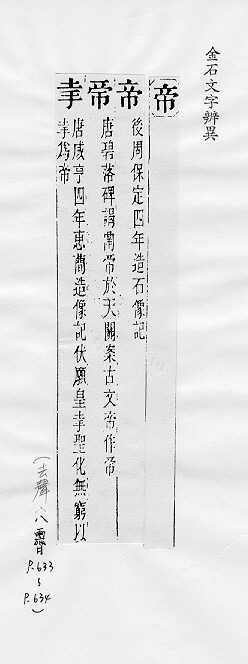 金石文字辨異
帝
帝 後周保定四年造石像記
帝 唐碧落碑謁帝於天關案古文帝作帝
唐咸亨四年惠蕳造像記伏願皇𡴘聖化無窮以
𡴘爲帝
(去聲八霽
P.633
P.634)